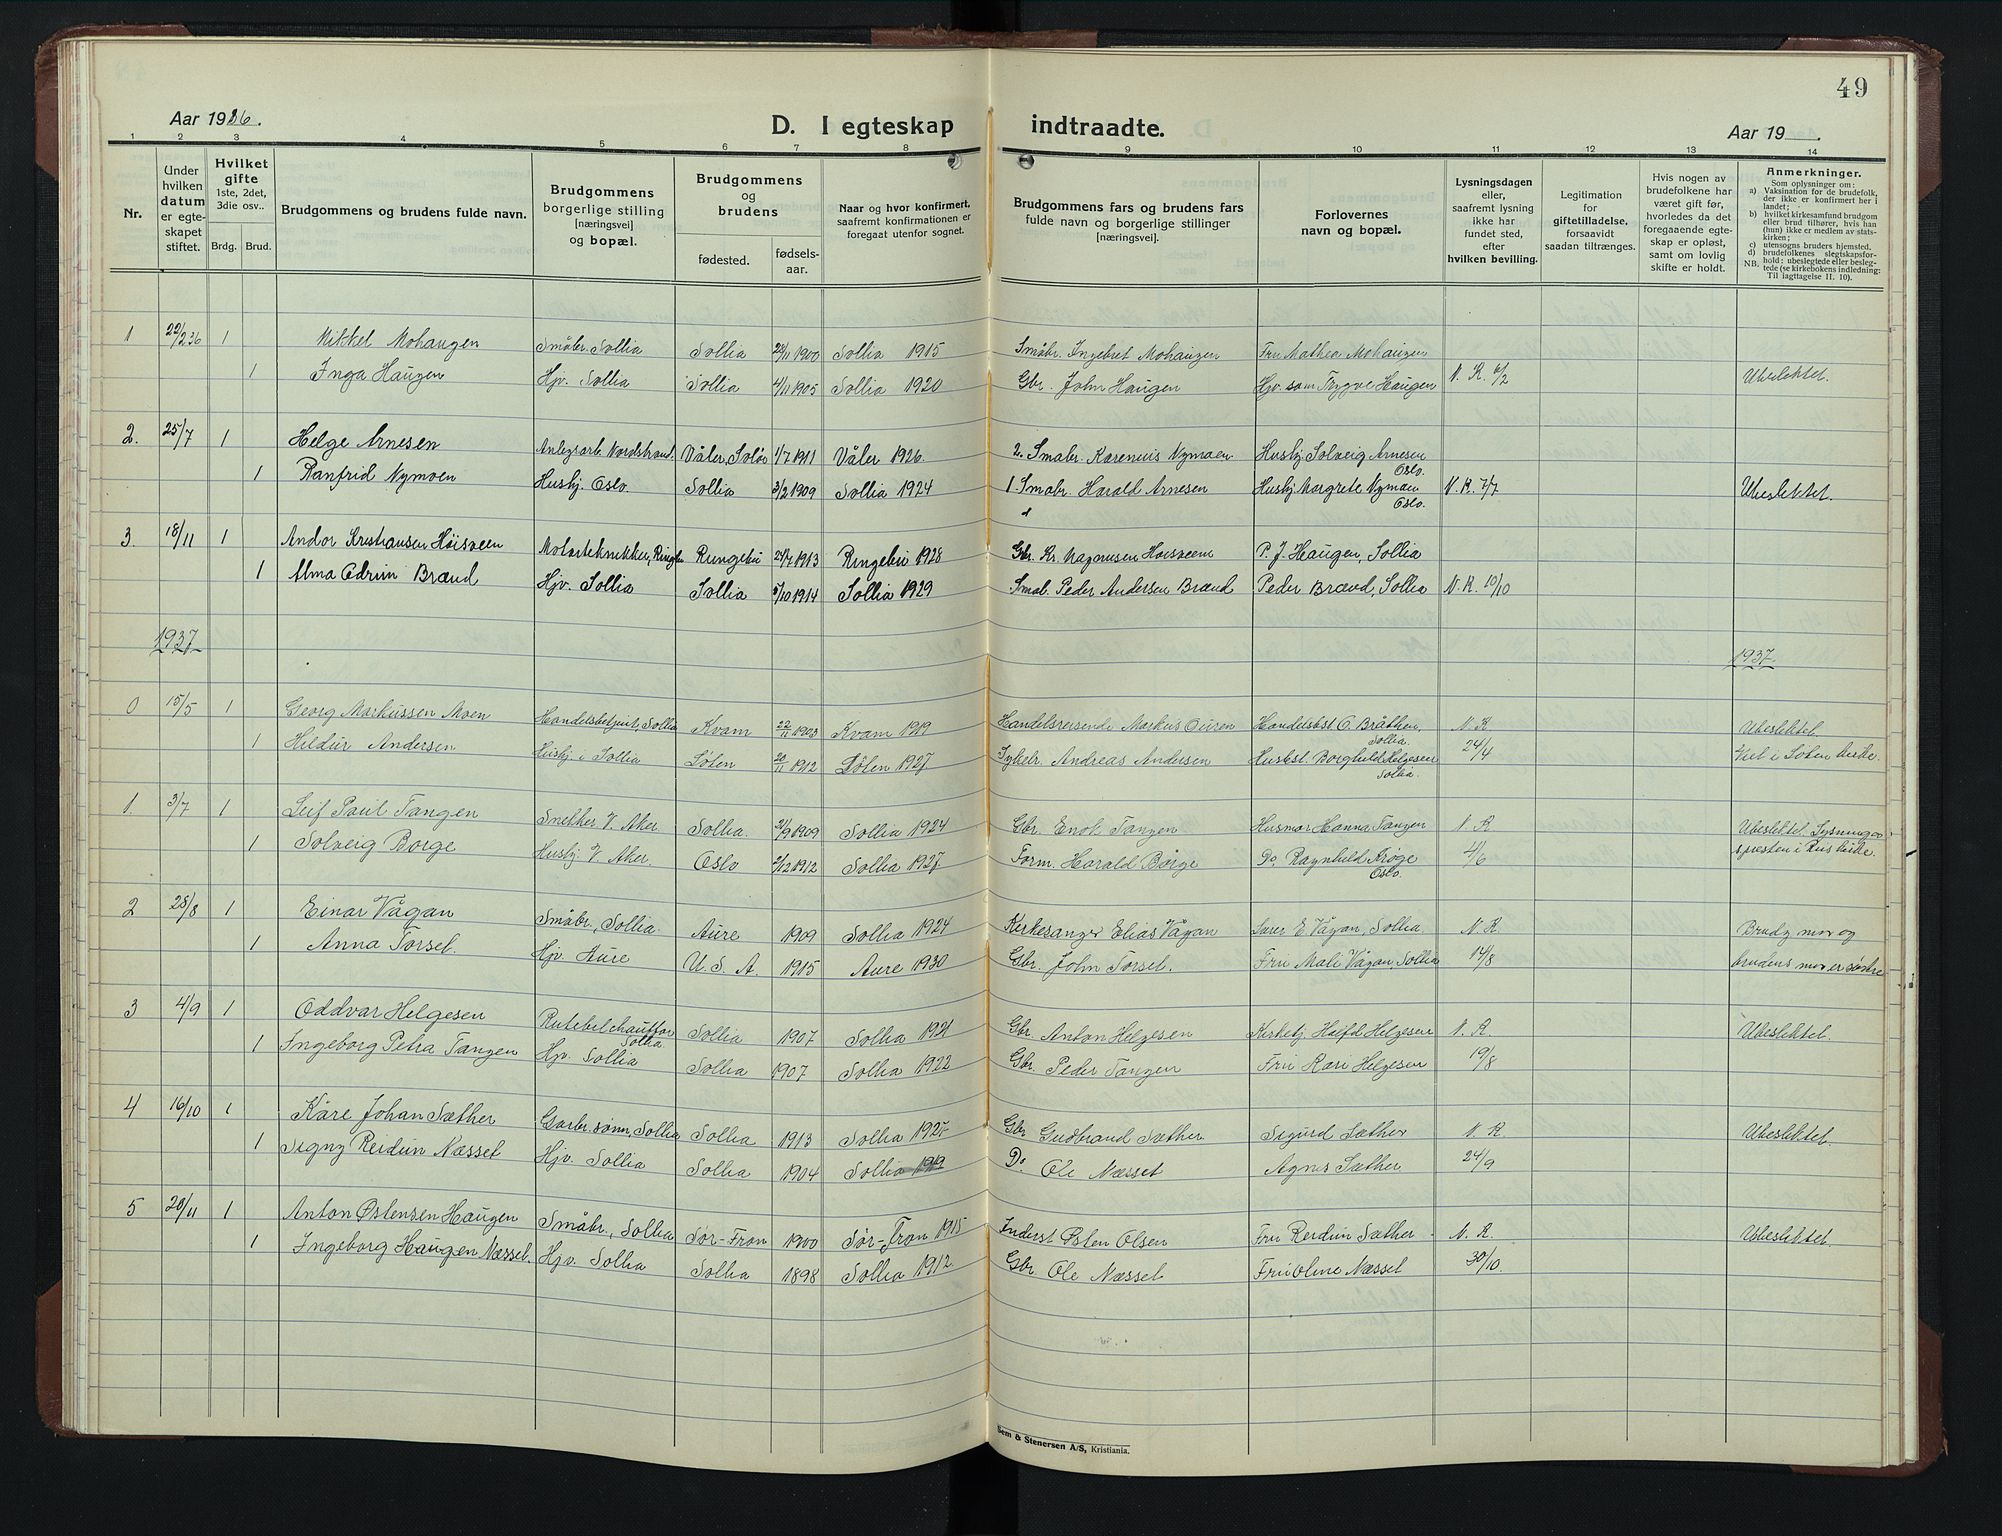 49
Aar 1936.
D. I egteskap indtraadte.
Aar 19
1 2 3 4 5 6 7 8 9 10 11 12 13 14
Nr.
Under hvilken datum er egteskapet stiftet.
Hvilket gifte 1ste, 2det, 3die osv..
Brdg. Brud.
Brudgommens og brudens fulde navn.
Brudgommens borgerlige stilling [næringsvei] og bopæl.
Brudgommens og brudens
fødested.
fødselsaar.
Naar og hvor konfirmert, saafremt konfirmationen er foregaat utenfor sognet.
Brudgommens fars og brudens fars fulde navn og borgerlige stillinger [næringsvei].
Forlovernes navn og bopæl.
Lysningsdagen eller, saafremt lysning ikke har fundet sted, efter hvilken bevilling.
Legitimation for giftetilladelse, forsaavidt saadan tiltrænges.
Hvis nogen av brudefolkene har været gift før, hvorledes da det foregaaende egteskap er opløst, samt om lovlig skifte er holdt.
Anmerkninger.
Som oplysninger om:
a) Vaksination for de brudefolk, der ikke er konfirmert her i landet;
b) hvilket kirkesamfund brudgom eller brud tilhører, hvis han (hun) ikke er medlem av statskirken;
c) utensogns bruders hjemsted.
d) brudefolkenes slegtskapsforhold: ubeslegtede eller beslegtede (se kirkebokens indledning: Til iagttagelse II. 10).
NB.
1 22/2 36 1 Mikkel Mohaugen Småbr. Sollia Sollia 1900 Sollia 1915 Småbr. Ingebret Mohaugen Fru Mathea Mohaugen
1 Inga Haugen Hjv. Sollia Sollia 4/11 1905 Sollia 1920 Gbr. John Haugen Hjv. som Trygve Haugen N. K. 9/2 Ubeslektet.
2. 25/7 1 Helge Arnesen Anlegsarb. Nordstrand. Våler, Solør 1/7 1911 Våler 1926. 2. Småbr. Karenius Nymoen Husbj. Solveig Arnesen Oslo.
1 Ranfrid Nymoen Husbj. Oslo Sollia 3/2 1909 Sollia 1924 1 Småbr. Harald Arnesen Husbj. Margrete Nymoen Oslo. N. K. 7/7 Ubeslektet.
3. 18/11 1 Andor Kristiansen Høisveen Motortekniker, Ringebu Ringebu 24/7 1913 Ringebu 1928 Gbr. Kr. Magnussen Høisveen P. J. Haugen, Sollia
1 Alma Odrun Brænd Hjv. Sollia Sollia 5/10 1914 Sollia 1929 Småb. Peder Andersen Brænd Peder Brænd, Sollia N. K. 10/10
1937 1937.
0 15/5 1 Georg Markussen Moen Handelsbetjent, Sollia Kvam 22/11 1903 Kvam 1919 Handelsreisende Markus Ouren Handelsbst. O. Bråthen Sollia. N. K. Ubeslektet.
1 Hildur Andersen Husbj. i Sollia Løten 20/11 1912 Løten 1927. Andreas Andersen Husbst. Borghild Helgesen Sollia. 24/4 Viet i Løten kirke.
1. 3/7 1 Leif Paul Tangen Snekker V. Aker Sollia. 21/9 1909 Sollia 1924 Gbr. Enok Tangen Husmor Hanna Tangen N. K. Ubeslektet. Lysning av
1 Solveig Borge Husbj. V. Aker. Oslo 2/12 1912 Sollia 1927. Form. Harald Borge Do Ragnhild Krøge Oslo. 4/6 presten i Ris kirke.
2 28/8 1 Einar Vågan Småbr., Sollia. Aure 1909 Sollia 1924 Kirkesanger Elias Vågan Lærer E. Vågan, Sollia. N. K. Brudg. mor og
1 Anna Torset. Hjv. Aure U. S. A. 1915 Aure 1930 Gbr. John Torset. Fru Mali Vågan, Sollia 14/8 brudens mor er søstre
3 4/9 1 Oddvar Helgesen Rutebilchauffør Sollia Sollia 1907 Sollia 1921 Gbr. Anton Helgesen Kirketj. Helgesen N. K. Ubeslektet.
1 Ingeborg Petra Tangen Hjv. Sollia Sollia 1907 Sollia 1922 Gbr. Peder Tangen Fru Kari Helgesen 19/8
4 16/10 1 Kåre Johan Sæther Garbr. sønn, Sollia Sollia 1913 Sollia 1927. Gbr. Gudbrand Sæther. Sigurd Sæther N. K. Ubeslektet.
1 Signy Reidun Næsset Hjv. Sollia Sollia 1904 Sollia 1919 Do Ole Næsset Agnes Sæther 24/9
5 20/11 1 Anton Østensen Haugen Småbr., Sollia Sør-Fron 1900 Sør-Fron 1915 Inderst Østen Olsen Fru Reidun Sæther N. K. Ubeslektet.
1 Ingeborg Haugen Næsset. Hjv. Sollia Sollia 1898 Sollia 1912. Gbr. Ole Næsset Fru Oline Næsset 30/10.
Sem & Stenersen A/S, Kristiania.